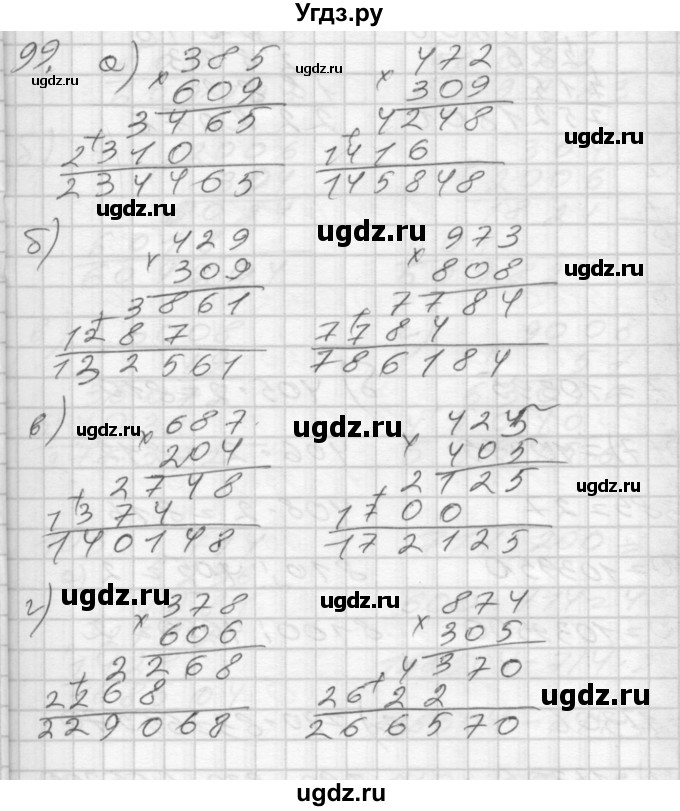 Угдз.ру
99. а) 385 472
ugdz.ru × 609 ugdz.ru × 309
3465 4248 ugdz.ru
+ 2310 + 1416
234465 145848
ugdz.ru ugdz.ru
б) 429 973
× 309 × 808 ugdz.ru
3861 7784
+ 1287 + 7784
132561 786184
в) 687 ugdz.ru 425
ugdz.ru × 204 × 405
2748 2125 ugdz.ru
+ 1374 + 1700
140148 172125
ugdz.ru ugdz.ru
г) 378 874
× 606 × 305
2268 4370
+ 2268 + 2622 ugdz.ru
229068 266570
ugdz.ru
ugdz.ru